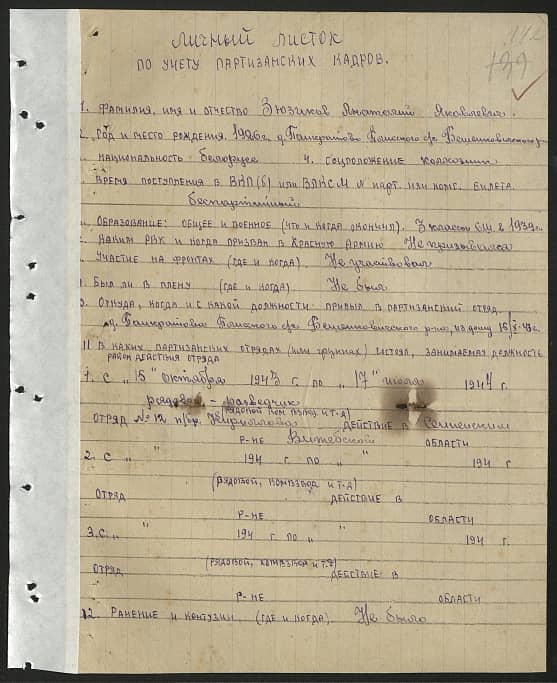 Личный листок
по учету партизанских кадров.
1. Фамилия, имя и отчество Зюзиков Анатолий Яковлевич.
2. Год и место рождения. 1926 г. д. Панкратово с/с Бешенковичского р
национальность белорусс 4. Соцположение колхозник
Время поступления в ВКП(б) или ВЛКСМ N парт. или комс. билета.
беспартийный
Образование: общее и военное (что и когда окончил). 3 класса в 1939 г.
Каким РВК и когда призван в Красную Армию Не призывался
Участие на фронтах (где и когда). Не участвовал
Был ли в плену (где и когда). Не был
Откуда, когда и с какой должности прибыл в партизанский отряд.
д. Панкратово с/с Бешенковичского р-на, из дому 15/X-43 г.
11 В каких партизанских отрядах (или группах) состоял, занимаемая должность
район действия отряда
1. с „15" октября 1943 г. по „17" июля 1944 г.
рядовой - разведчик
(рядовой, ком. взвода и т-д)
Отряд № 12 п/бр. Кириллова действие в Сенненском
р-не Витебской области
2. с „ " 194 г. по „ " 194 г
(рядовой, комвзвода и т-д)
отряд действие в
р-не области
3. с „ " 194 г. по „ " 194 г.
(рядовой, комвзвода и т.д)
отряд действие в
р-не области
12. Ранение и контузии. (где и когда). Не было